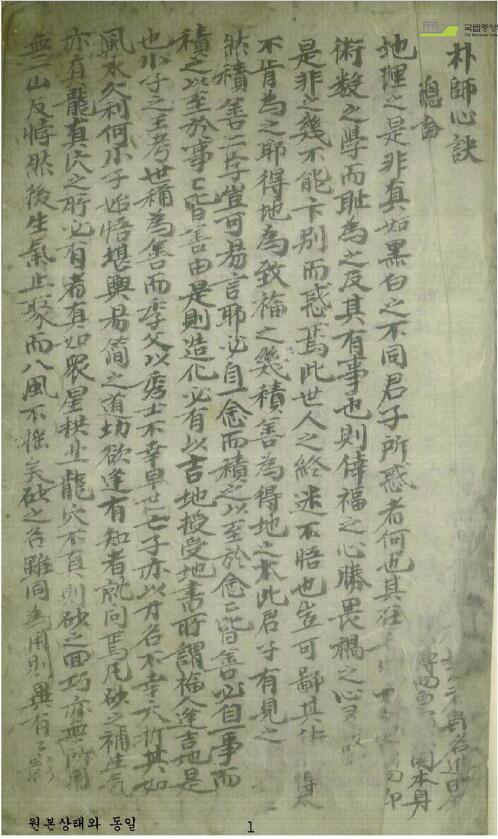 국립중앙
朴師心訣
總論
地理之是非真如黑白之不同君子所惑者何也其在
術数之學而耻為之及其有事也則倖福之心勝畏禍之心
是非之幾不能卞別而惑焉此世人之終迷不悟也豈可鄙其術
不肯為之耶得地為致福之幾積善為得地之本此君子有見之
然積善二字豈可易言耶必自一念而積之以至於念〻皆善必自一事而
積之以至於事〻皆善由是則造化必有以吉地授受地書所謂福人逢吉地是
也小子之王考世稱為善而季父以秀士不幸早世亡子亦以才名不幸夭折其如
風水久利何小子始悟堪輿易簡之道切欲逢有知者就問焉凡砂之補生氣
亦有龍真穴之所必有者真如衆星拱北龍穴不真則砂之面巧亦無所用
無二山反悖然後生氣止聚而八風不搖矣砂之名雖同為用則異有
원본상태와 동일
1